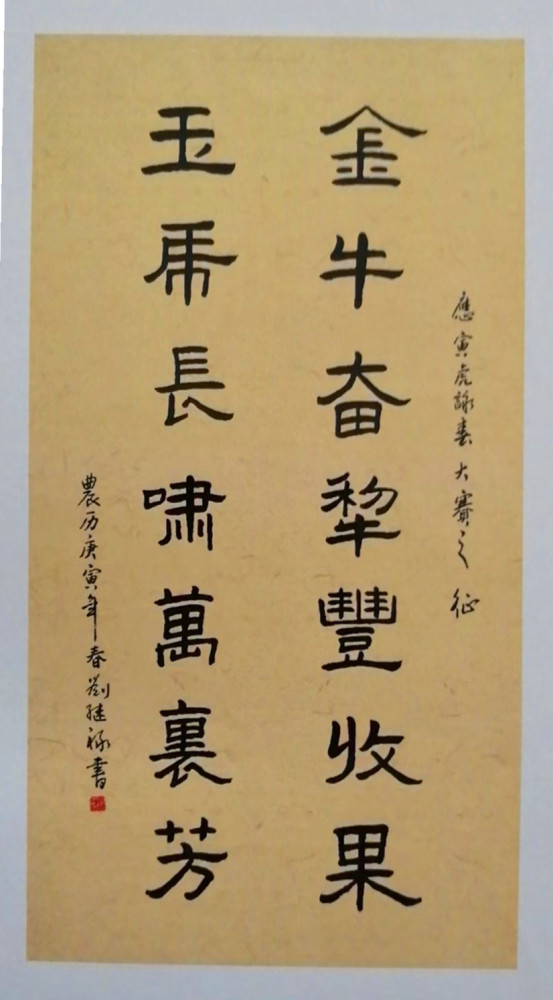 應寅虎詠春大賽之征
金牛奋犂豐收果
玉虎長啸萬裏芳
農历庚寅年春劉继禄書